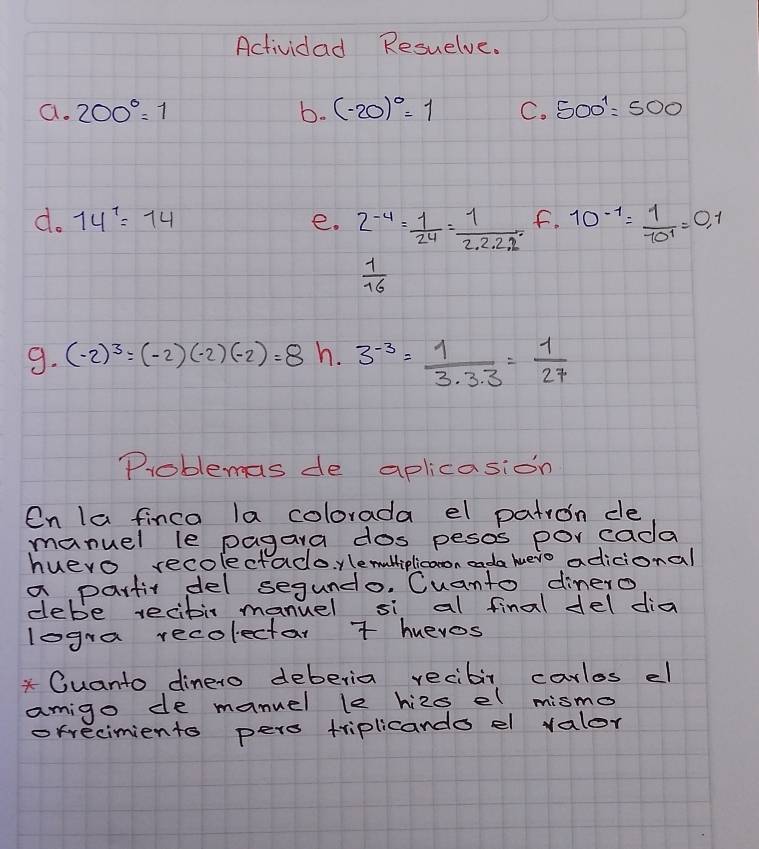 Actividad Resuelve.
a. 200⁰ = 1 b. (-20)⁰ = 1 c. 500¹ = 500
d. 14¹ = 14 e. 2⁻⁴ = 1/24 = 1/2.2.2.2 f. 10⁻¹ = 1/10¹ = 0,1
1/16
g. (-2)³ = (-2)(-2)(-2) = 8 h. 3⁻³ = 1/3.3.3 = 1/27
Problemas de aplicasión
En la finca la colorada el patrón de
manuel le pagara dos pesos por cada
huevo recolectado. y le multiplicaron cada huevo adicional
a partir del segundo. Cuanto dinero
debe recibir manuel si al final del dia
logra recolectar 7 huevos
* Cuanto dinero deberia recibir carlos el
amigo de manuel le hizo el mismo
ofrecimiento pero triplicando el valor